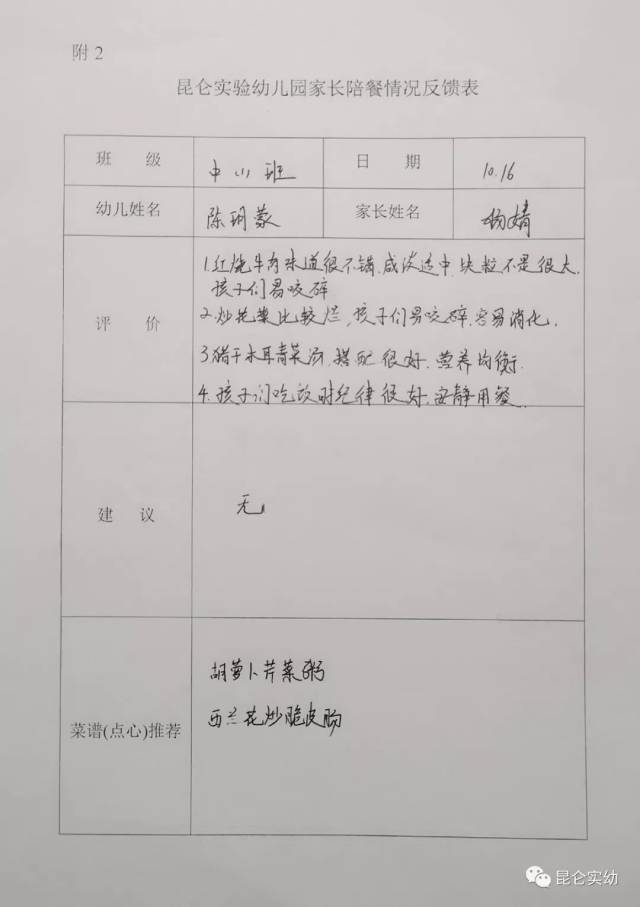 附 2
昆仑实验幼儿园家长陪餐情况反馈表
班 级 中(1)班 日 期 10.16
幼儿姓名 陈玥蒙 家长姓名 杨婧
1.红烧牛肉味道很不错,咸淡适中,块粒不是很大,
孩子们易咬碎
评 价
2.炒花菜比较烂,孩子们易咬碎,容易消化.
3.猪干木耳青菜汤,搭配很好.营养均衡.
4.孩子们吃饭时纪律很好.安静用餐.
建 议 无
胡萝卜芹菜粥
西兰花炒脆皮肠
菜谱(点心)推荐
昆仑实幼